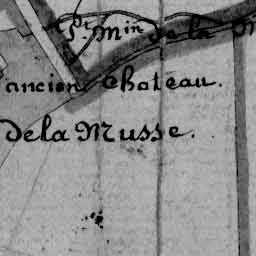 P.t Min de la M
ancien Chateau.
de la Musse.